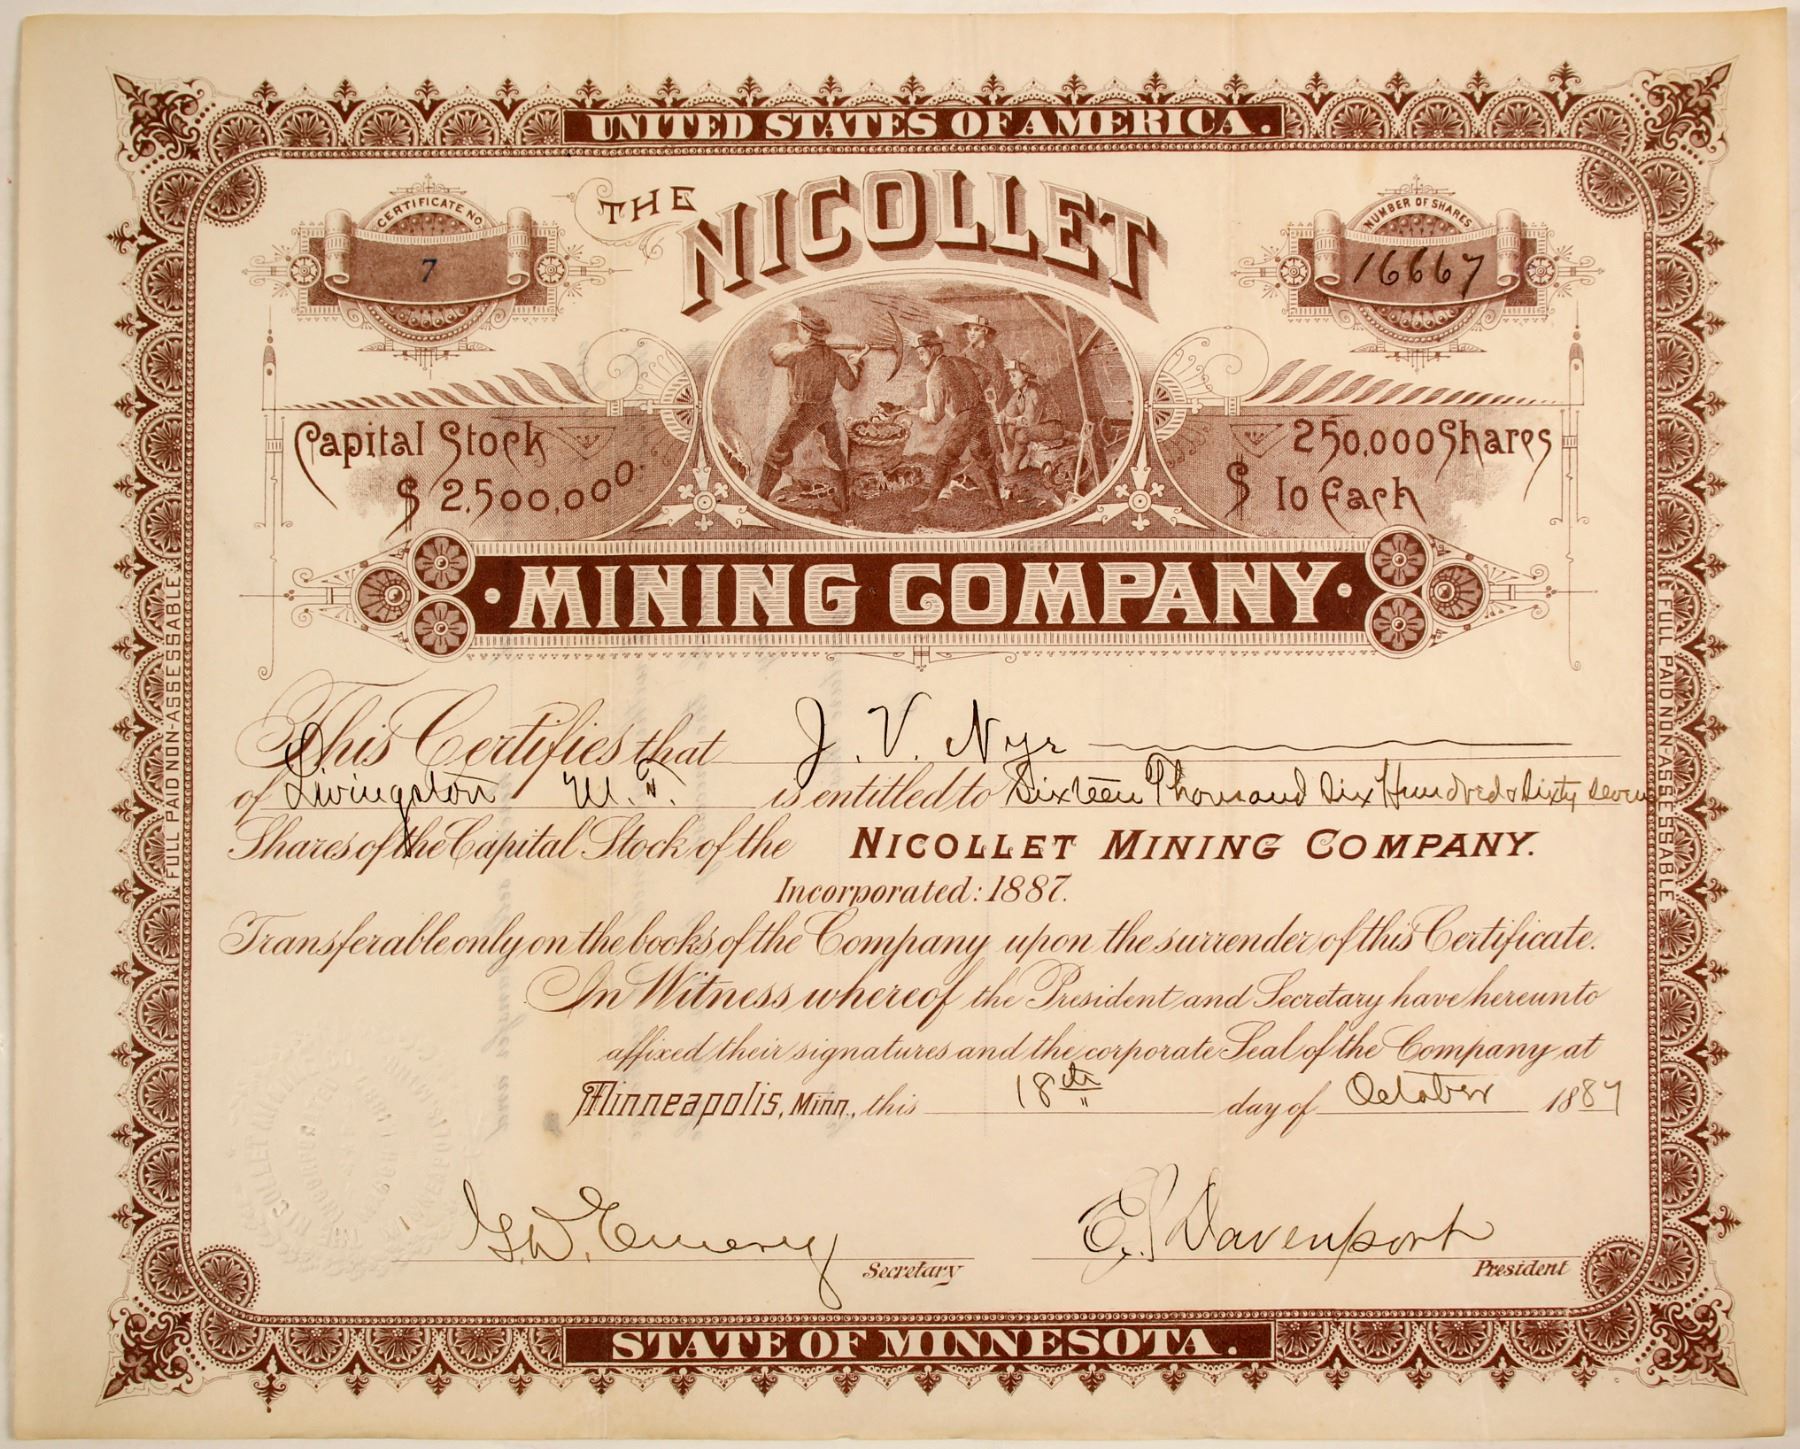 UNITED STATES OF AMERICA.
CERTIFICATE NO.
7
THE NICOLLET
NUMBER OF SHARES
16667
Capital Stock
$2,500,000.
250,000 Shares
$10 Each
MINING COMPANY
FULL PAID NON-ASSESSABLE.
FULL PAID NON-ASSESSABLE
This Certifies that J. V. Nye
of Livingston M. T. is entitled to Sixteen Thousand Six Hundred & Sixty Seven
Shares of the Capital Stock of the NICOLLET MINING COMPANY.
Incorporated: 1887.
Transferable only on the books of the Company upon the surrender of this Certificate.
In Witness whereof the President and Secretary have hereunto
affixed their signatures and the corporate Seal of the Company at
Minneapolis, Minn., this 18th day of October 1887
G.W. Emery
Secretary
Davenport
President
STATE OF MINNESOTA.